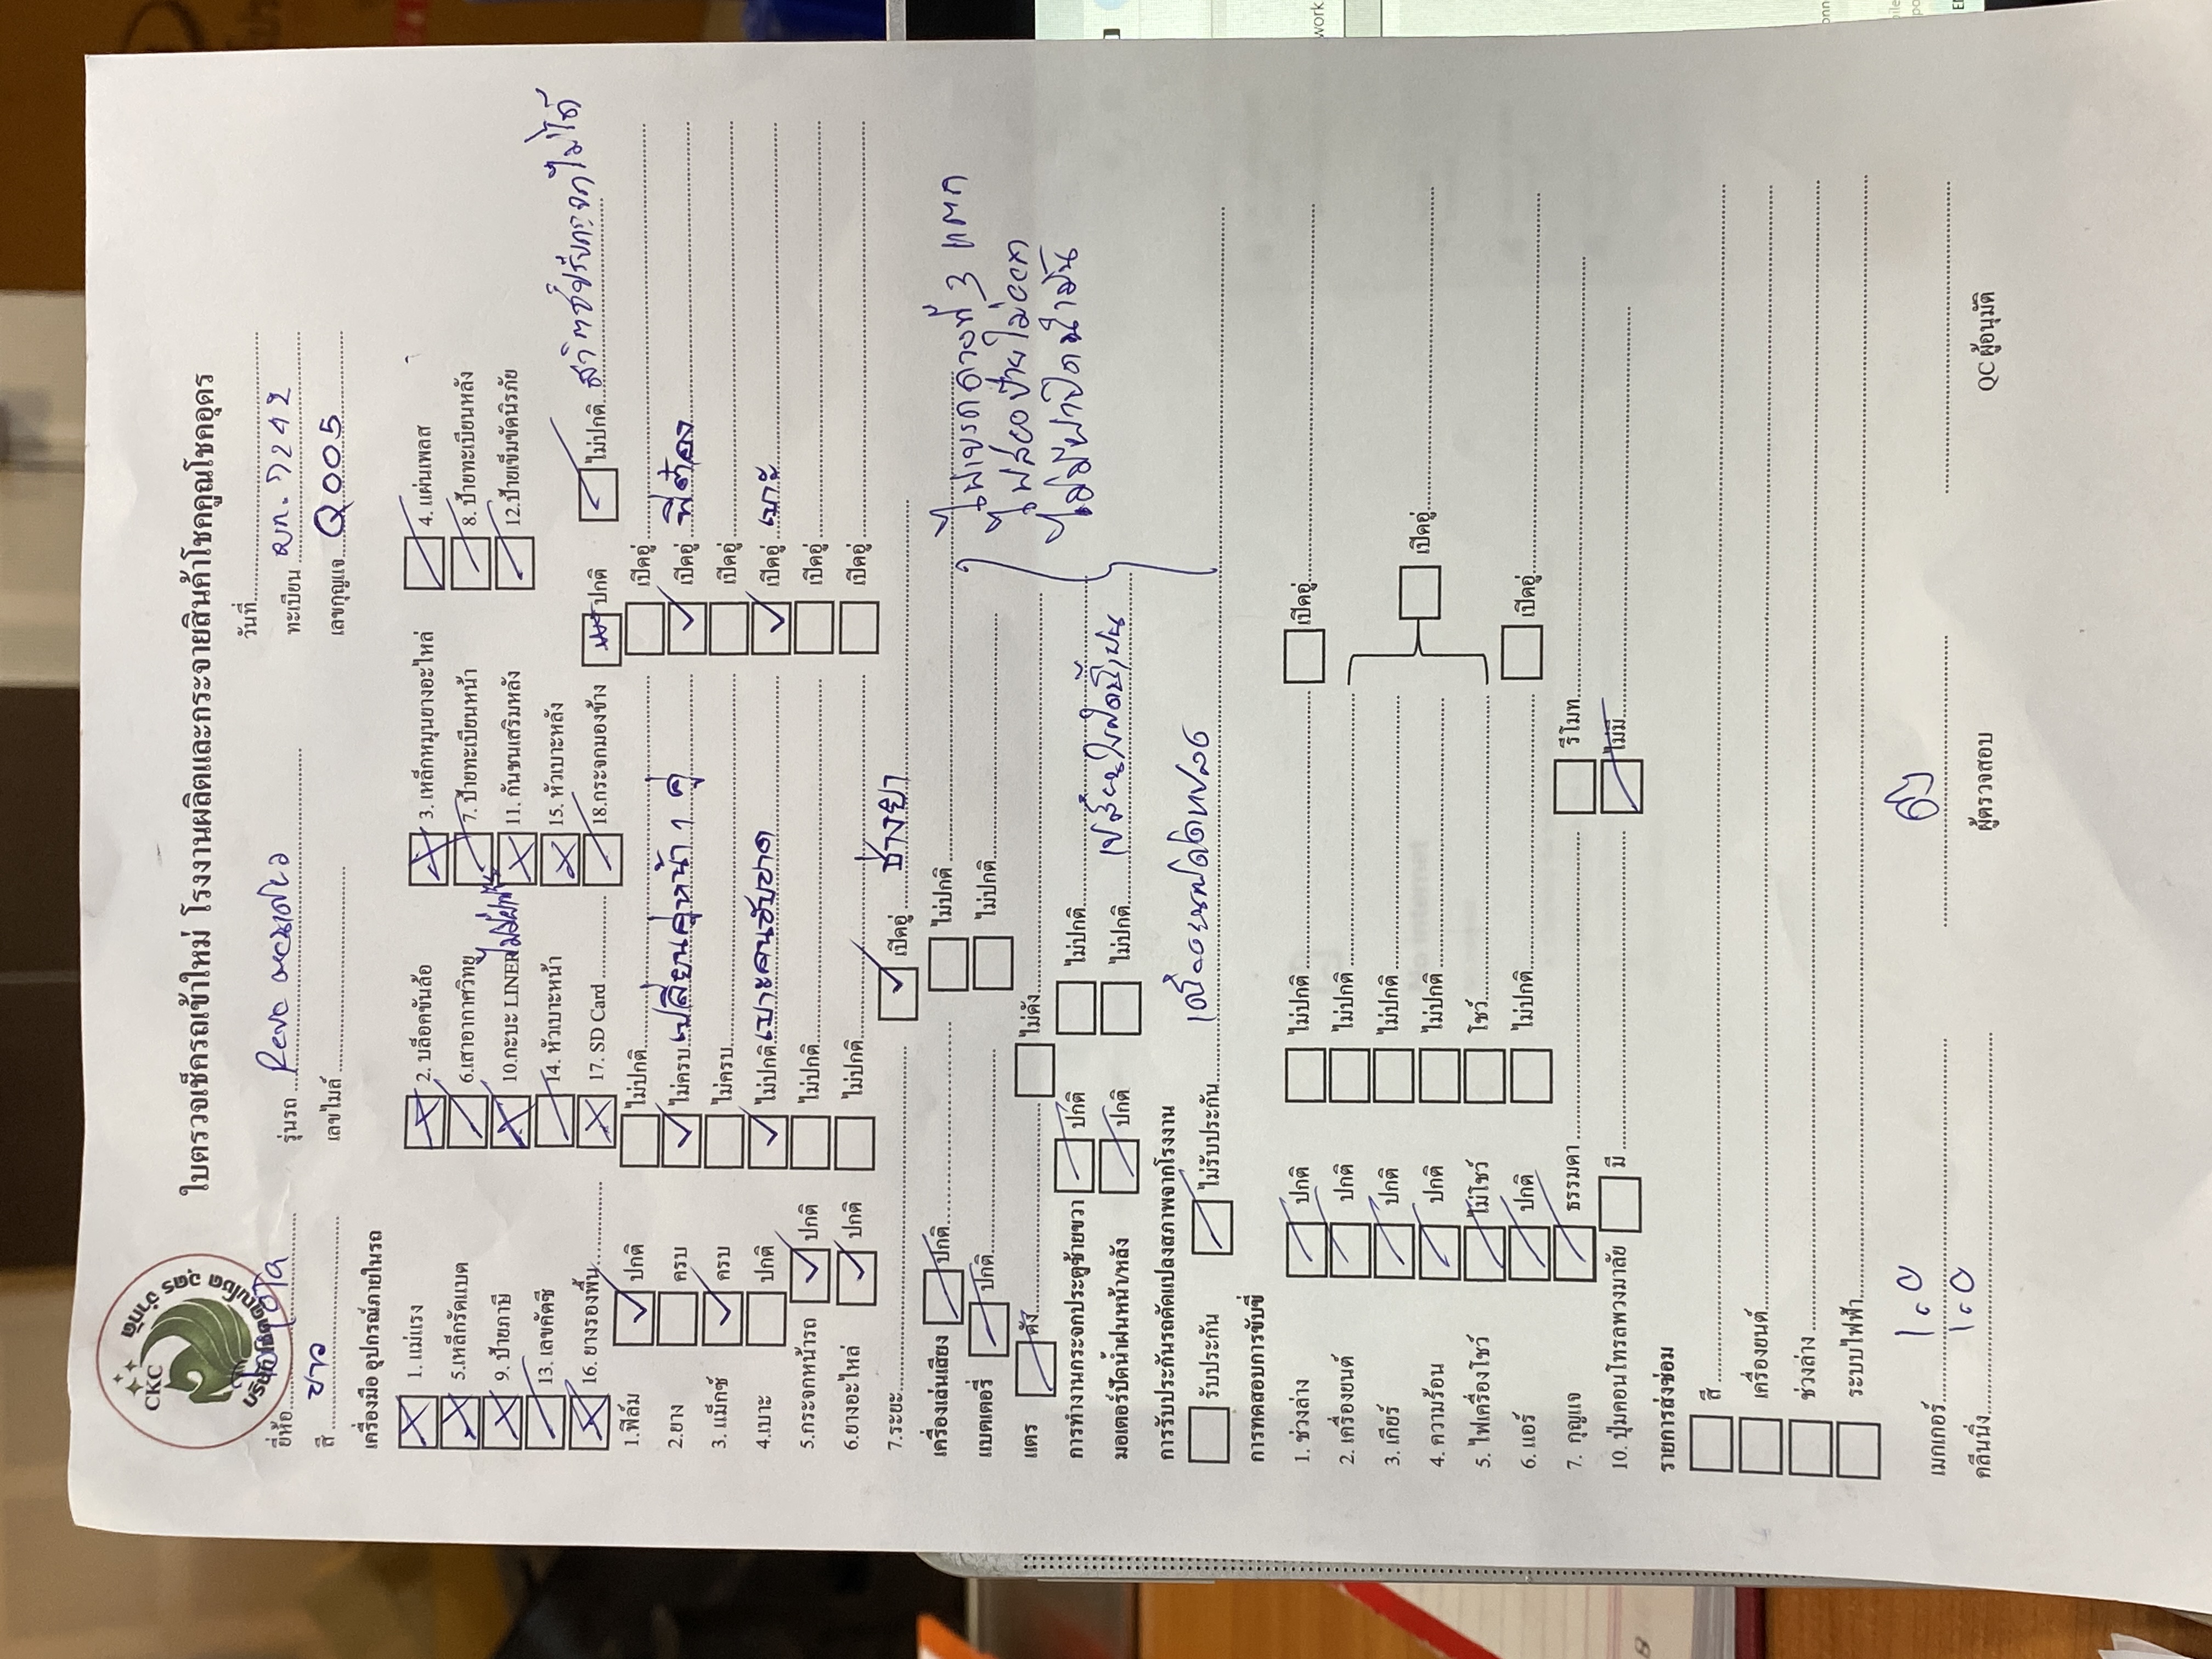 ใบตรวจเช็ครถเข้าใหม่ โรงงานผลิตและกระจายสินค้าโชคคูณโชคอุดร
CKC
บริษัท โชคคูณโชค อุดร จำกัด
วันที่
ยี่ห้อ รุ่นรถ Revo ทะเบียน 7242
สี ขาว เลขไมล์ เลขกุญแจ Q005
เครื่องมือ อุปกรณ์ภายในรถ
1. แม่แรง 2. บล็อคขันล้อ 3. เหล็กหมุนยางอะไหล่ 4. แผ่นเพลส
5.เหล็กรัดแบต 6.เสาอากาศวิทยุ 7. ป้ายทะเบียนหน้า 8. ป้ายทะเบียนหลัง
9. ป้ายภาษี 10.กะบะ LINER 11. กันชนเสริมหลัง 12.ป้ายเข็มขัดนิรภัย
13. เลขคัดซี 14. หัวเบาะหน้า 15. หัวเบาะหลัง
16. ยางรองพื้น 17. SD Card 18.กระจกมองข้าง ปกติ ไม่ปกติ สวิตซ์ปรับกระจกไม่ได้
1.ฟิล์ม ปกติ ไม่ปกติ เปิดอู่
2.ยาง ครบ ไม่ครบ เปลี่ยนคู่หน้า 1 คู่ เปิดอู่ พี่ต๋อง
3. แม็กซ์ ครบ ไม่ครบ เปิดอู่
4.เบาะ ปกติ ไม่ปกติ เบาะคนขับขาด เปิดอู่ เบาะ
5.กระจกหน้ารถ ปกติ ไม่ปกติ เปิดอู่
6.ยางอะไหล่ ปกติ ไม่ปกติ เปิดอู่
7.ระยะ เปิดอู่ ช่างยา
เครื่องเล่นเสียง ปกติ ไม่ปกติ ไฟเบรคดวงที่ 3 แตก
แบตเตอรี่ ปกติ ไม่ปกติ ไฟส่องป้ายไม่
แตร ดัง ไม่ดัง ไม่มีฝาปิดน้ำมัน
การทำงานกระจกประตูซ้ายขวา ปกติ ไม่ปกติ
มอเตอร์ปัดน้ำฝนหน้า/หลัง ปกติ ไม่ปกติ เปลี่ยนใบปัดน้ำฝน
การรับประกันรถดัดแปลงสภาพจากโรงงาน
รับประกัน ไม่รับประกัน
การทดสอบการขับขี่
1. ช่วงล่าง ปกติ ไม่ปกติ เปิดอู่
2. เครื่องยนต์ ปกติ ไม่ปกติ
3. เกียร์ ปกติ ไม่ปกติ
4. ความร้อน ปกติ ไม่ปกติ เปิดอู่
5. ไฟเครื่องโชว์ ไม่โชว์ โชว์
6. แอร์ ปกติ ไม่ปกติ เปิดอู่
7. กุญแจ ธรรมดา รีโมท
10. ปุ่มคอนโทรลพวงมาลัย มี ไม่มี
รายการส่งซ่อม
สี
เครื่องยนต์
ช่วงล่าง
ระบบไฟฟ้า
เมกเกอร์
คลีนนิ่ง ผู้ตรวจสอบ QC ผู้อนุมัติ